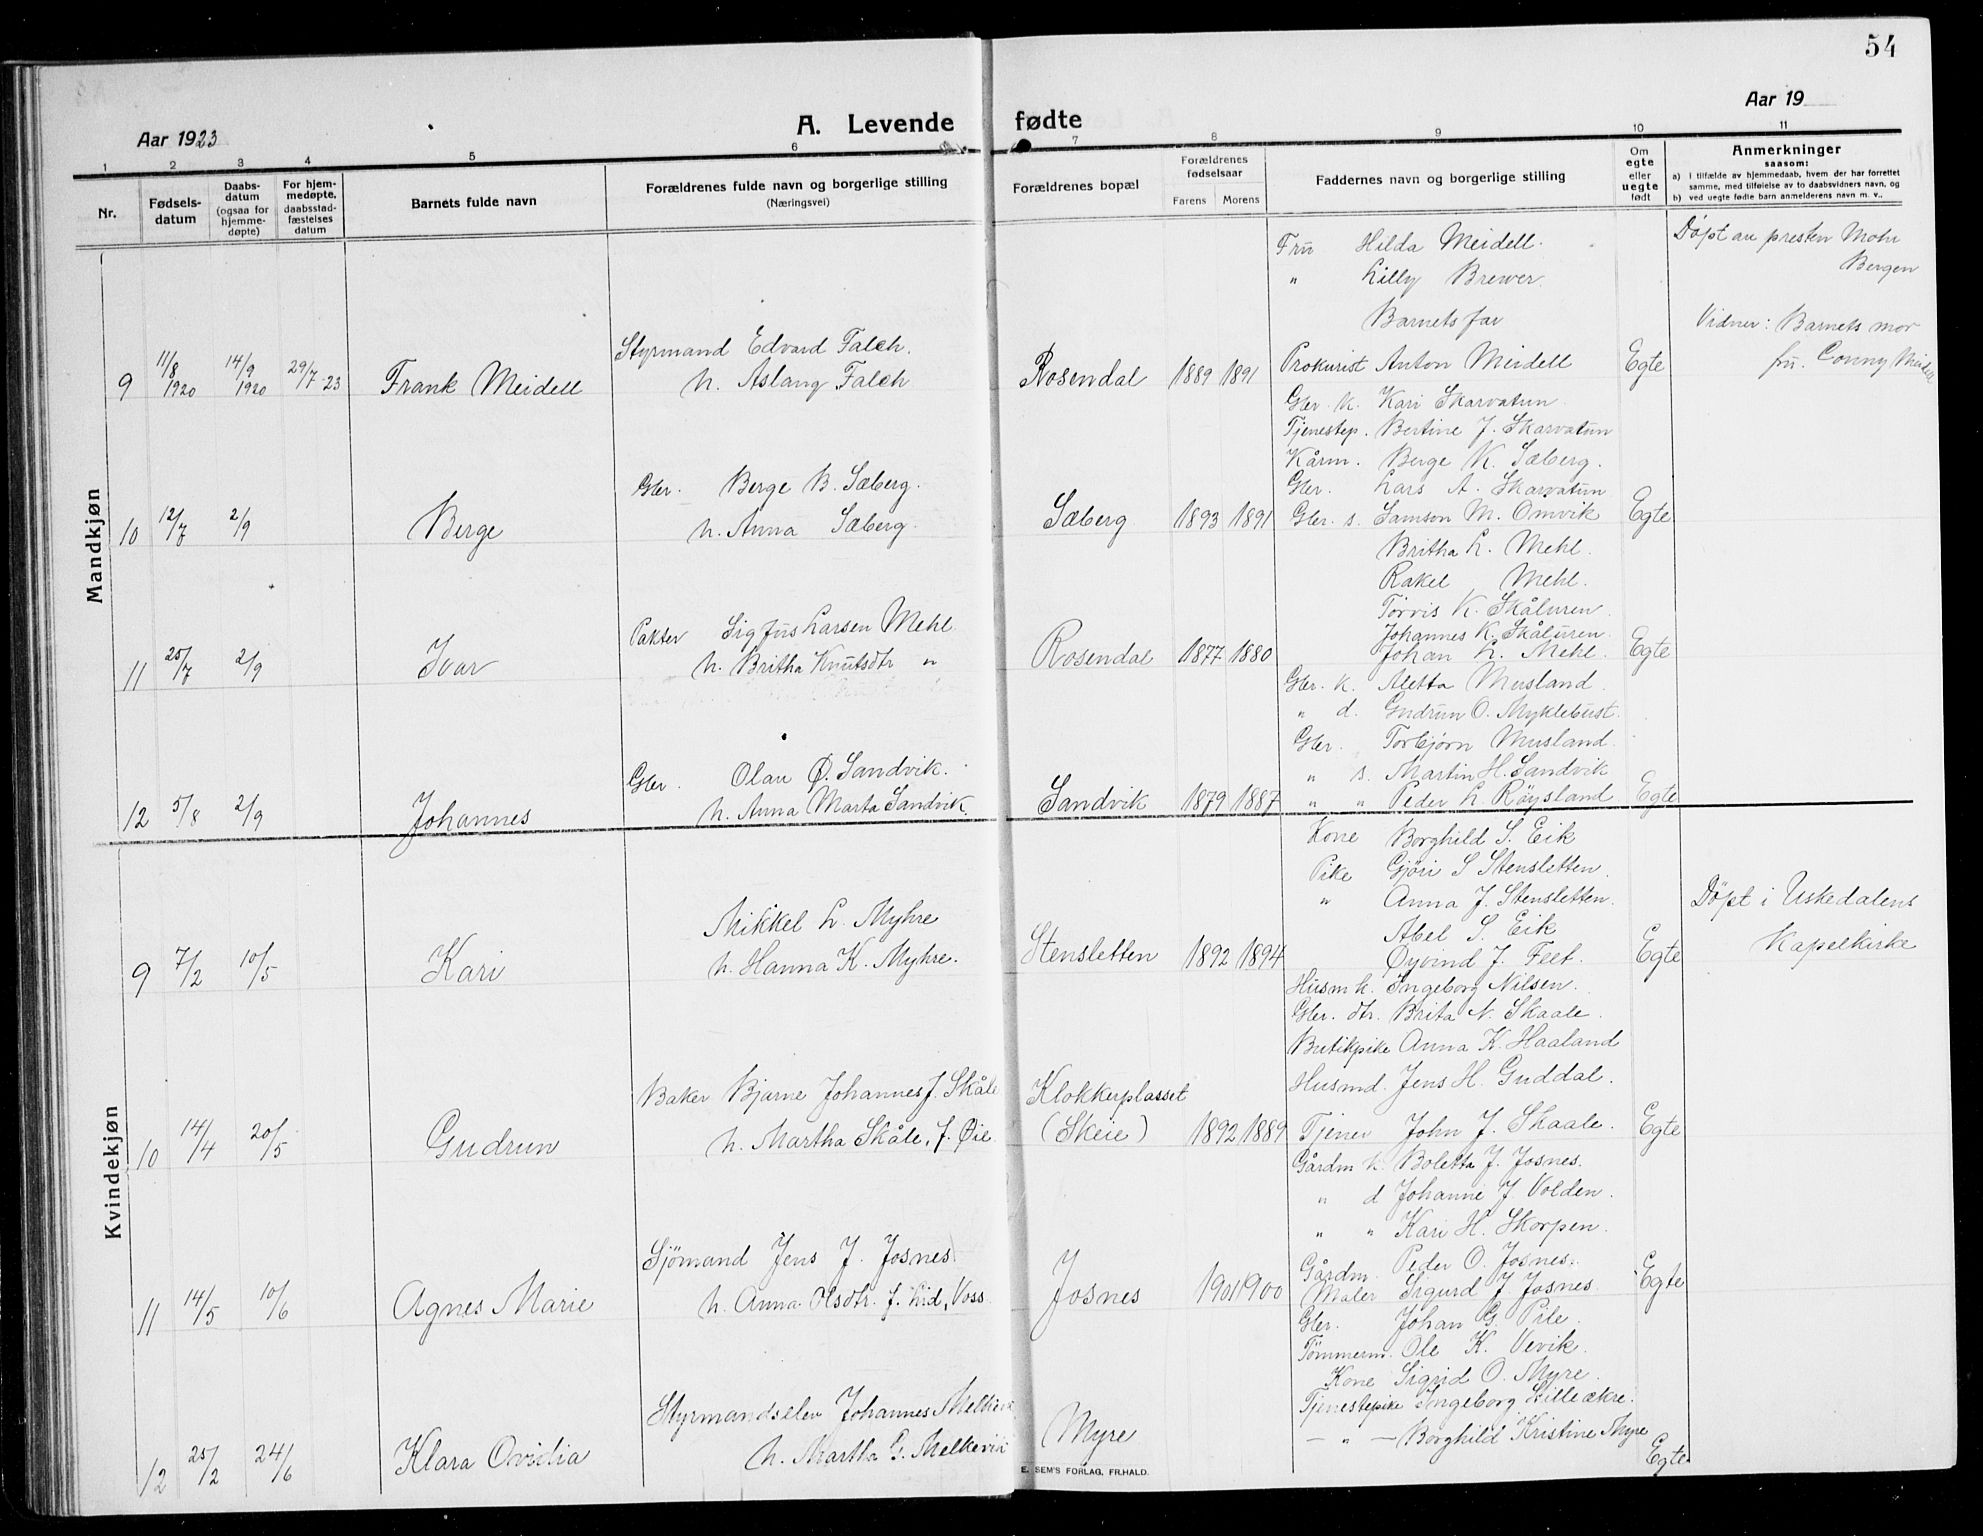 54
Aar 1923
A. Levende fødte
Aar 19
1 2 3 4 5 6 7 8 9 10 11
Nr.
Fødsels-
datum
Daabs-
datum
(ogsaa for
hjemme-
døpte)
For hjem-
medøpte,
daabsstad-
fæstelses
datum
Barnets fulde navn
Forældrenes fulde navn og borgerlige stilling
(Næringsvei)
Forældrenes bopæl
Forældrenes
fødselsaar
Farens Morens
Faddernes navn og borgerlige stilling
Om
egte
eller
uegte
født
Anmerkninger
saasom:
a) i tilfælde av hjemmedaab, hvem der har forrettet
samme, med tilføielse av to daabsvidners navn, og
b) ved uegte fødte barn anmelderens navn m. v.,
Mandkjøn
9 11/8 1920 14/9 1920 29/7 23 Frank Meidell
Styrmand Edvard Falch.
h. Aslaug Falch
Rosendal 1889 1891
Fru Hilda Meidell.
" Lilly Brewer.
Barnets far
Prokurist Anton Meidell
Egte
Døpt av presten Mohr
Bergen
Vidner: Barnets mor
fru. Conny Meidell
10 12/7 2/9 Berge
Gbr. Berge B. Sæberg.
h. Anna Sæberg.
Sæberg 1893 1891
Gbr. k. Kari Skarvatun
Tjenestep. Bertine J. Skarvatun
Kårm. Berge K. Sæberg.
Gbr. Lars A. Skarvatun
Gbr. s. Samson M. Omvik
Egte
11 25/7 2/9 Ivar
Pakter Sigfus Larsen Mehl
h. Britha Knutsdtr "
Rosendal 1877 1880
Britha L. Mehl.
Rakel Mehl.
Torvis K. Skåluren.
Johannes K. Skåluren.
Johan L. Mehl.
Egte
12 5/8 2/9 Johannes
Gbr. Olav Ø. Sandvik.
h. Anna Marta Sandvik
Sandvik 1879 1887
Gbr. k. Aletta Musland.
" d. Gudrun O. Myklebust.
Gbr. Torbjørn Musland.
" s. Martin H. Sandvik
" " Peder L. Røysland
Egte
Kvindekjøn
9 7/2 10/5 Kari
Mikkel L. Myhre
h. Hanna K. Myhre.
Stensletten 1892 1894
Kone Borghild S. Eik
Pike Gjøri S Stensletten.
" Anna J. Stensletten.
Abel S. Eik
Øyvind J. Feet.
Egte
Døpt i Uskedalens
Kapelkirke
10 14/4 20/5 Gudrun
Baker Bjarne Johannes J. Skåle
h. Martha Skåle, f. Øie
Klokkerplasset
(Skeie) 1892 1889
Husm k. Ingeborg Nilsen.
Gbr. dtr. Brita N. Skaale.
Butikpike Anna K. Haaland
Husmd. Jens H. Guddal.
Tjener John J. Skaale.
Egte
11 14/5 10/6 Agnes Marie
Sjömand Jens J. Josnes
h. Anna Olsdtr. f. Lid, Voss
Josnes 1901 1900
Gårdm k. Boletta J. Josnes.
" d Johanne J. Volden.
" " Kari H. Skorpen.
Gårdm. Peder O. Josnes.
Maler Sigurd J. Josnes.
Egte
12 25/2 24/6 Klara Ovidia
Styrmandselev Johannes Melkevik
h. Martha G. Melkevik
Myre
Gbr. Johan G. Pile.
Tömmerm. Ole K. Vevik.
Kone Sigrid O. Myre.
Tjenestepike Ingeborg Lilleækre.
— " — Borghild Kristine Myre
Egte
E. SEM'S FORLAG, FR.HALD.